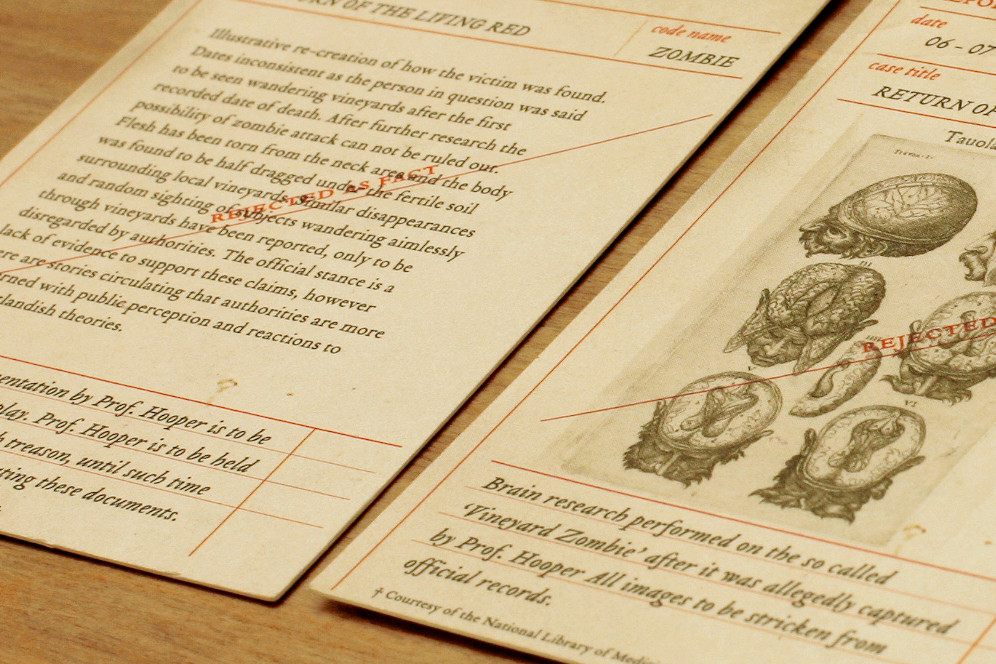 RN OF THE LIVING RED
code name
ZOMBIE
Illustrative re-creation of how the victim was found.
Dates inconsistent as the person in question was said
to be seen wandering vineyards after the first
recorded date of death. After further research the
possibility of zombie attack can not be ruled out.
Flesh has been torn from the neck area and the body
was found to be half dragged under the fertile soil
surrounding local vineyards. Similar disappearances
and random sighting of subjects wandering aimlessly
through vineyards have been reported, only to be
disregarded by authorities. The official stance is a
lack of evidence to support these claims, however
ere are stories circulating that authorities are more
rned with public perception and reactions to
tlandish theories.
REJECTED AS FACT
entation by Prof. Hooper is to be
play. Prof. Hooper is to be held
treason, until such time
ting these documents.
date
06 - 07
case title
RETURN OF
Tavola
III
V
VI
REJECTED
Brain research performed on the so called
'Vineyard Zombie' after it was allegedly captured
by Prof. Hooper All images to be stricken from
official records.
† Courtesy of the National Library of Medici